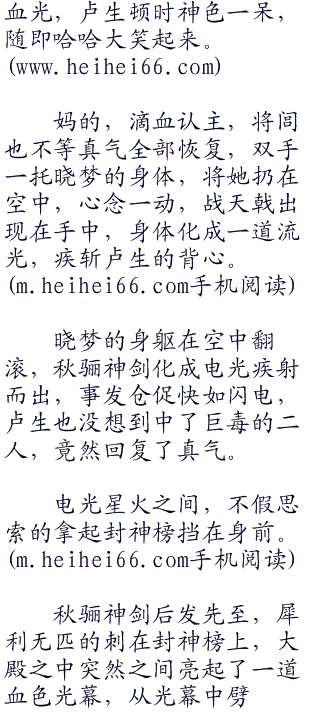 血光，卢生顿时神色一呆，
随即哈哈大笑起来。
(www.heihei66.com)
妈的，滴血认主，将闾
也不等真气全部恢复，双手
一托晓梦的身体，将她扔在
空中，心念一动，战天戟出
现在手中，身体化成一道流
光，疾斩卢生的背心。
(m.heihei66.com手机阅读)
晓梦的身躯在空中翻
滚，秋骊神剑化成电光疾射
而出，事发仓促快如闪电，
卢生也没想到中了巨毒的二
人，竟然回复了真气。
电光星火之间，不假思
索的拿起封神榜挡在身前。
(m.heihei66.com手机阅读)
秋骊神剑后发先至，犀
利无匹的刺在封神榜上，大
殿之中突然之间亮起了一道
血色光幕，从光幕中劈